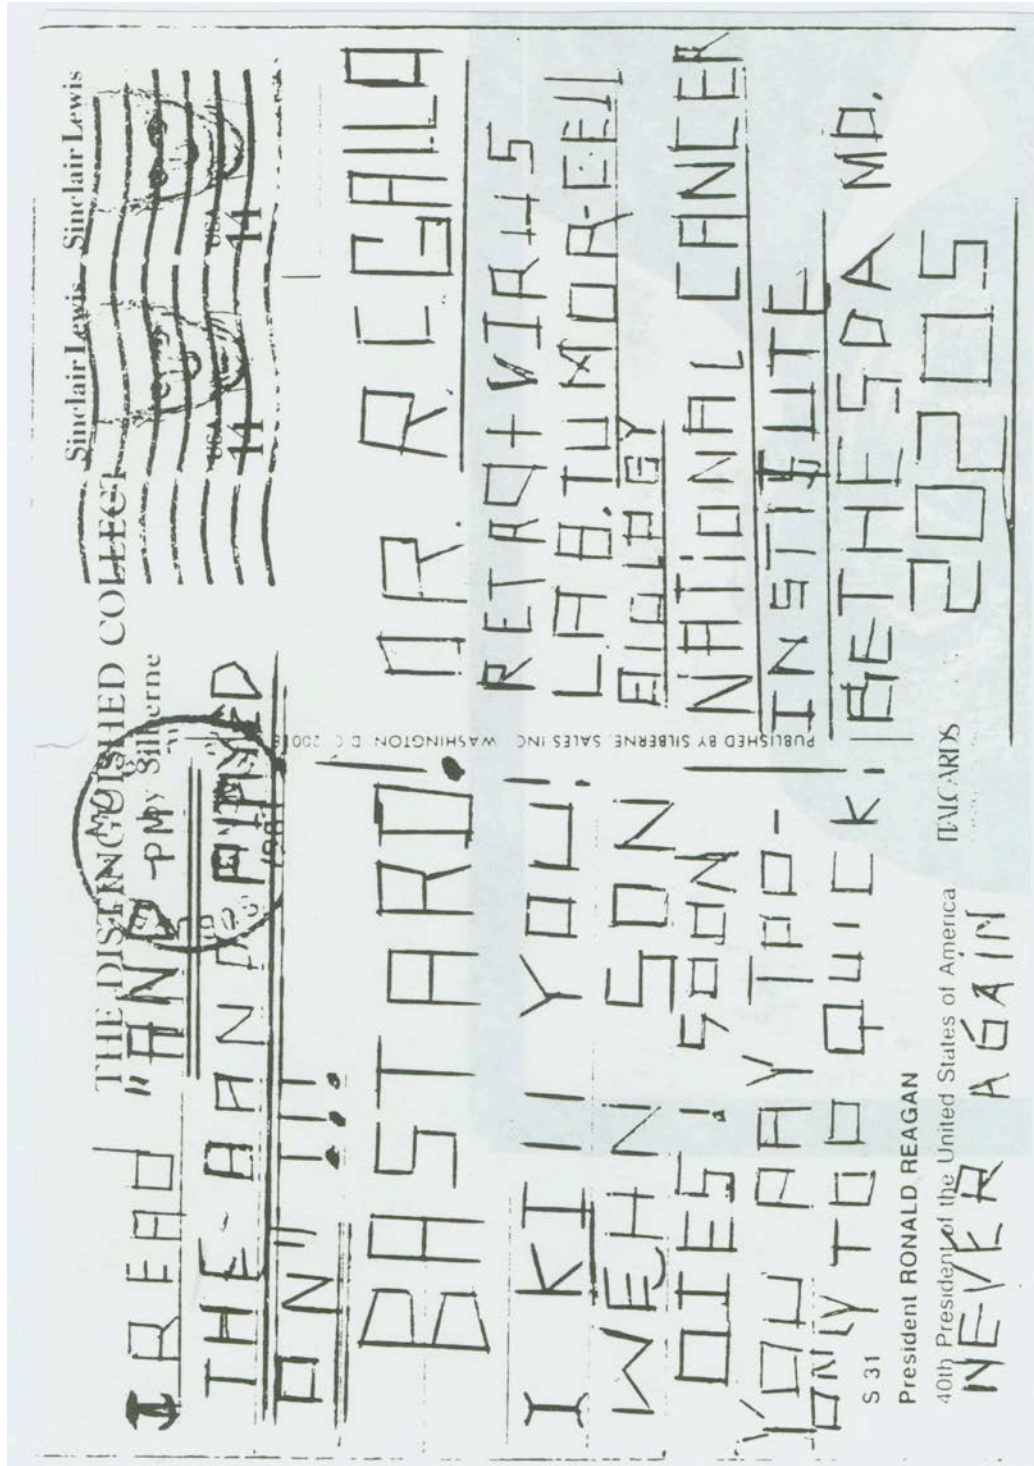 THE DISTINGUISHED COLLECT
by Silberne
Sinclair Lewis Sinclair Lewis
USA 14 USA 14
PM
I READ "AND
THE BAND PLAYED
ON"!!!
BASTARD!
I KILL YOU
WEHN SON
DIES! SOON
YOU PAY TOO-
ONLY TOO QUICK!
S 31
President RONALD REAGAN
40th President of the United States of America ITALCARDS
NEVER AGAIN
PUBLISHED BY SILBERNE SALES INC WASHINGTON D C
DR. R C GALLO
RETRO+VIRUS
LAB. TUMOR-CELL
BIOLOGY
NATIONAL CANCER
INSTITUTE
BETHESDA MD.
20205